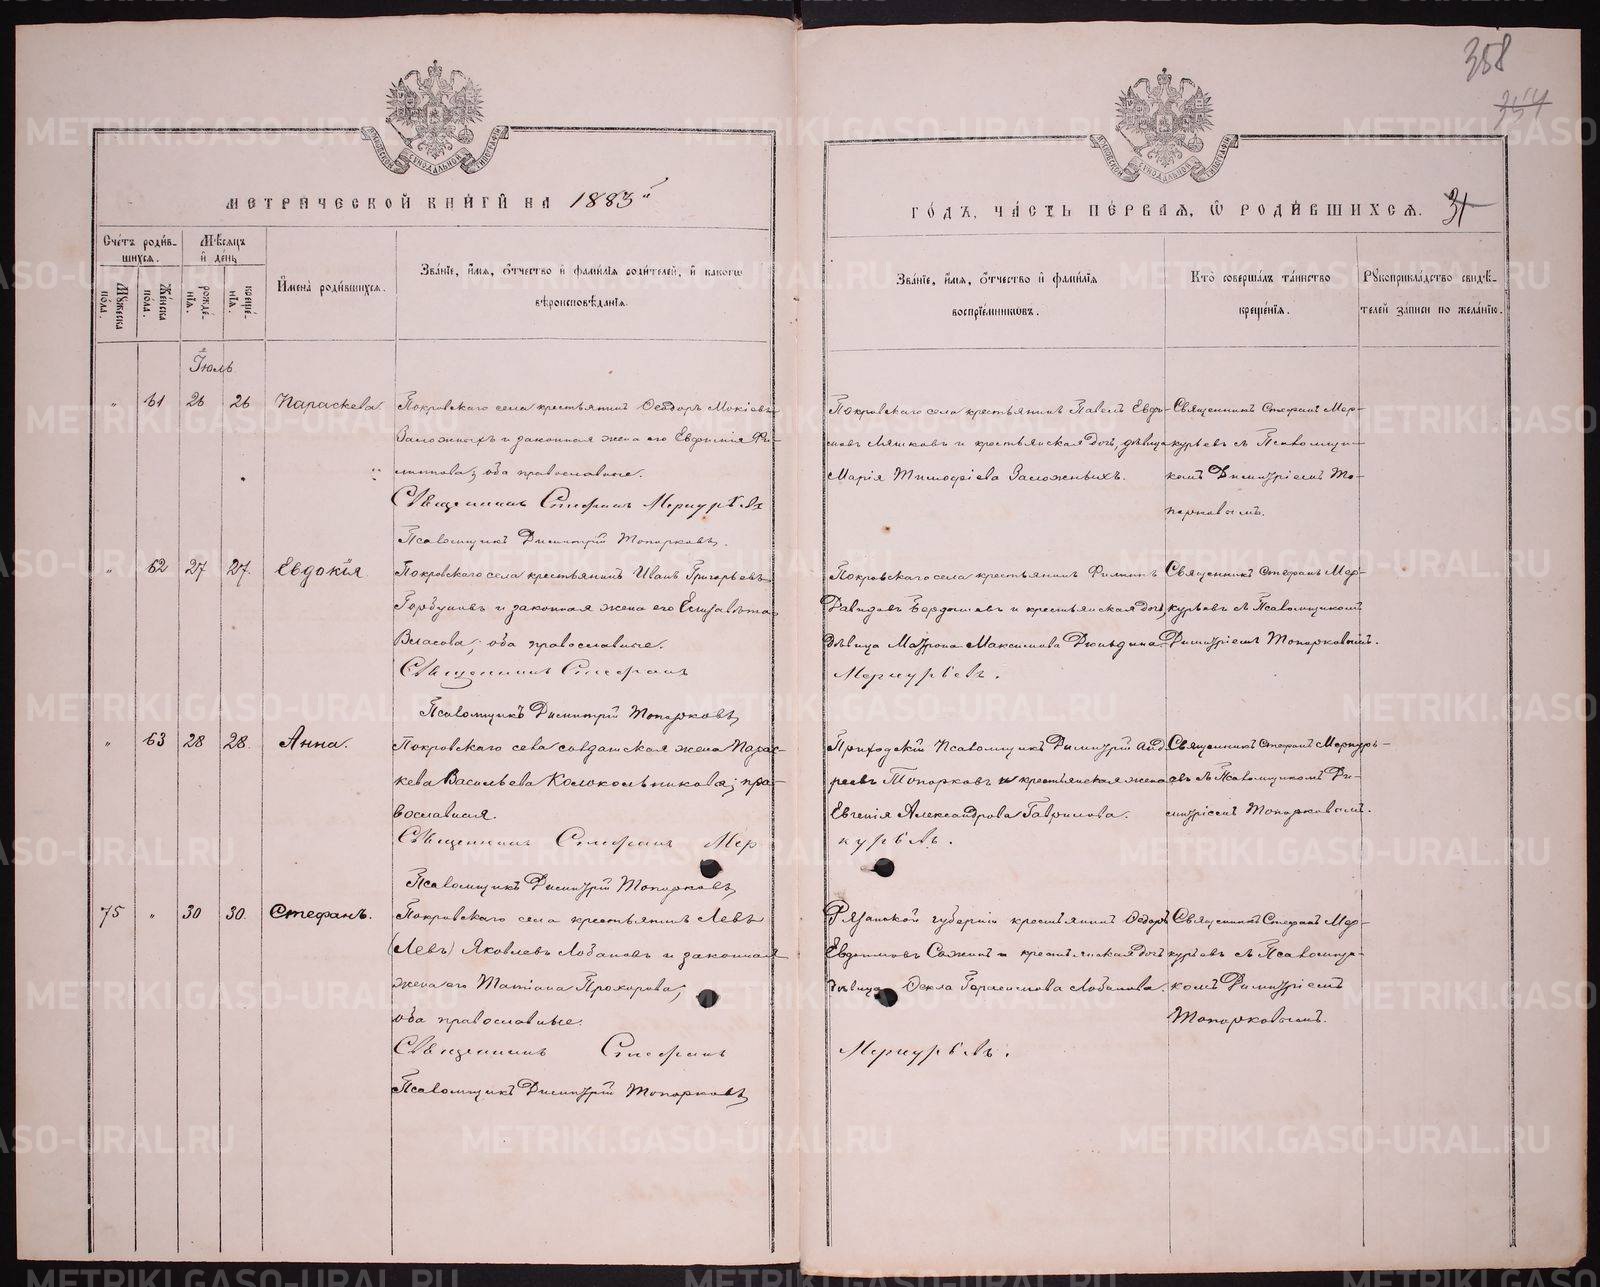 358
354
МЕТРИЧЕСКОЙ КНИГИ НА 1883й
ГОДЪ, ЧАСТЬ ПЕРВАЯ, Ѡ РОДИВШИХСЯ. 31
Счетъ родившихся.
Мужеска пола.
Женска пола.
Мѣсяцъ и день
рожденія.
крещенія.
Имена родившихся.
Званіе, имя, отчество и фамилія родителей, и какогѡ вѣроисповѣданія.
Званіе, имя, отчество и фамилія воспріемниковъ.
Кто совершалъ таинство крещенія.
Рукоприкладство свидѣтелей записи по желанію.
Іюль
" 61 26 26 Параскева
Покровскаго села крестьянинъ Ѳеодоръ Мокіевъ
Заложныхъ и законная жена его Евфимія Фи-
липпова; оба православные.
Священникъ Стефанъ Меркурьевъ
Псаломщикъ Димитрій Топорковъ.
Покровскаго села крестьянинъ Павелъ Евфи-
мовъ Ляшковъ и крестьянская дочь, дѣвица
Марія Тимофеева Заложныхъ.
Священникъ Стефанъ Мер-
курьевъ съ Псаломщи-
комъ Димитріемъ То-
порковымъ.
" 62 27 27. Евдокія
Покровскаго села крестьянинъ Иванъ Григорьевъ
Горбуновъ и законная жена его Елизавета
Власова; оба православные.
Священникъ Стефанъ
Псаломщикъ Димитрій Топорковъ
Покровскаго села крестьянинъ Филиппъ
Давидовъ Бердышевъ и крестьянская дочь,
дѣвица Матрона Максимова Дюльдина.
Меркурьевъ.
Священникъ Стефанъ Мер-
курьевъ съ Псаломщикомъ
Димитріемъ Топорковымъ.
" 63 28 28. Анна.
Покровскаго села солдатская жена Парас-
кева Васильева Колокольникова; пра-
вославная.
Священникъ Стефанъ Мер
Псаломщикъ Димитрій Топорковъ
Приходскій Псаломщикъ Димитрій Анд-
реевъ Топорковъ и крестьянская жена
Евгенія Александрова Гаврилова.
курьевъ.
Священникъ Стефанъ Меркурь-
евъ съ Псаломщикомъ Ди-
митріемъ Топорковымъ.
75 " 30 30. Стефанъ.
Покровскаго села крестьянинъ Левъ
(Левъ) Яковлевъ Лобановъ и законная
жена его Татіана Прохорова;
оба православные.
Священникъ Стефанъ
Псаломщикъ Димитрій Топорковъ
Рязанской губерніи крестьянинъ Ѳедоръ
Евдокимовъ Сажинъ и крестьянская дочь
дѣвица Ѳекла Герасимова Лобанова.
Меркурьевъ.
Священникъ Стефанъ Мер-
курьевъ съ Псаломщи-
комъ Димитріемъ
Топорковымъ.
METRIKI.GASO-URAL.RU